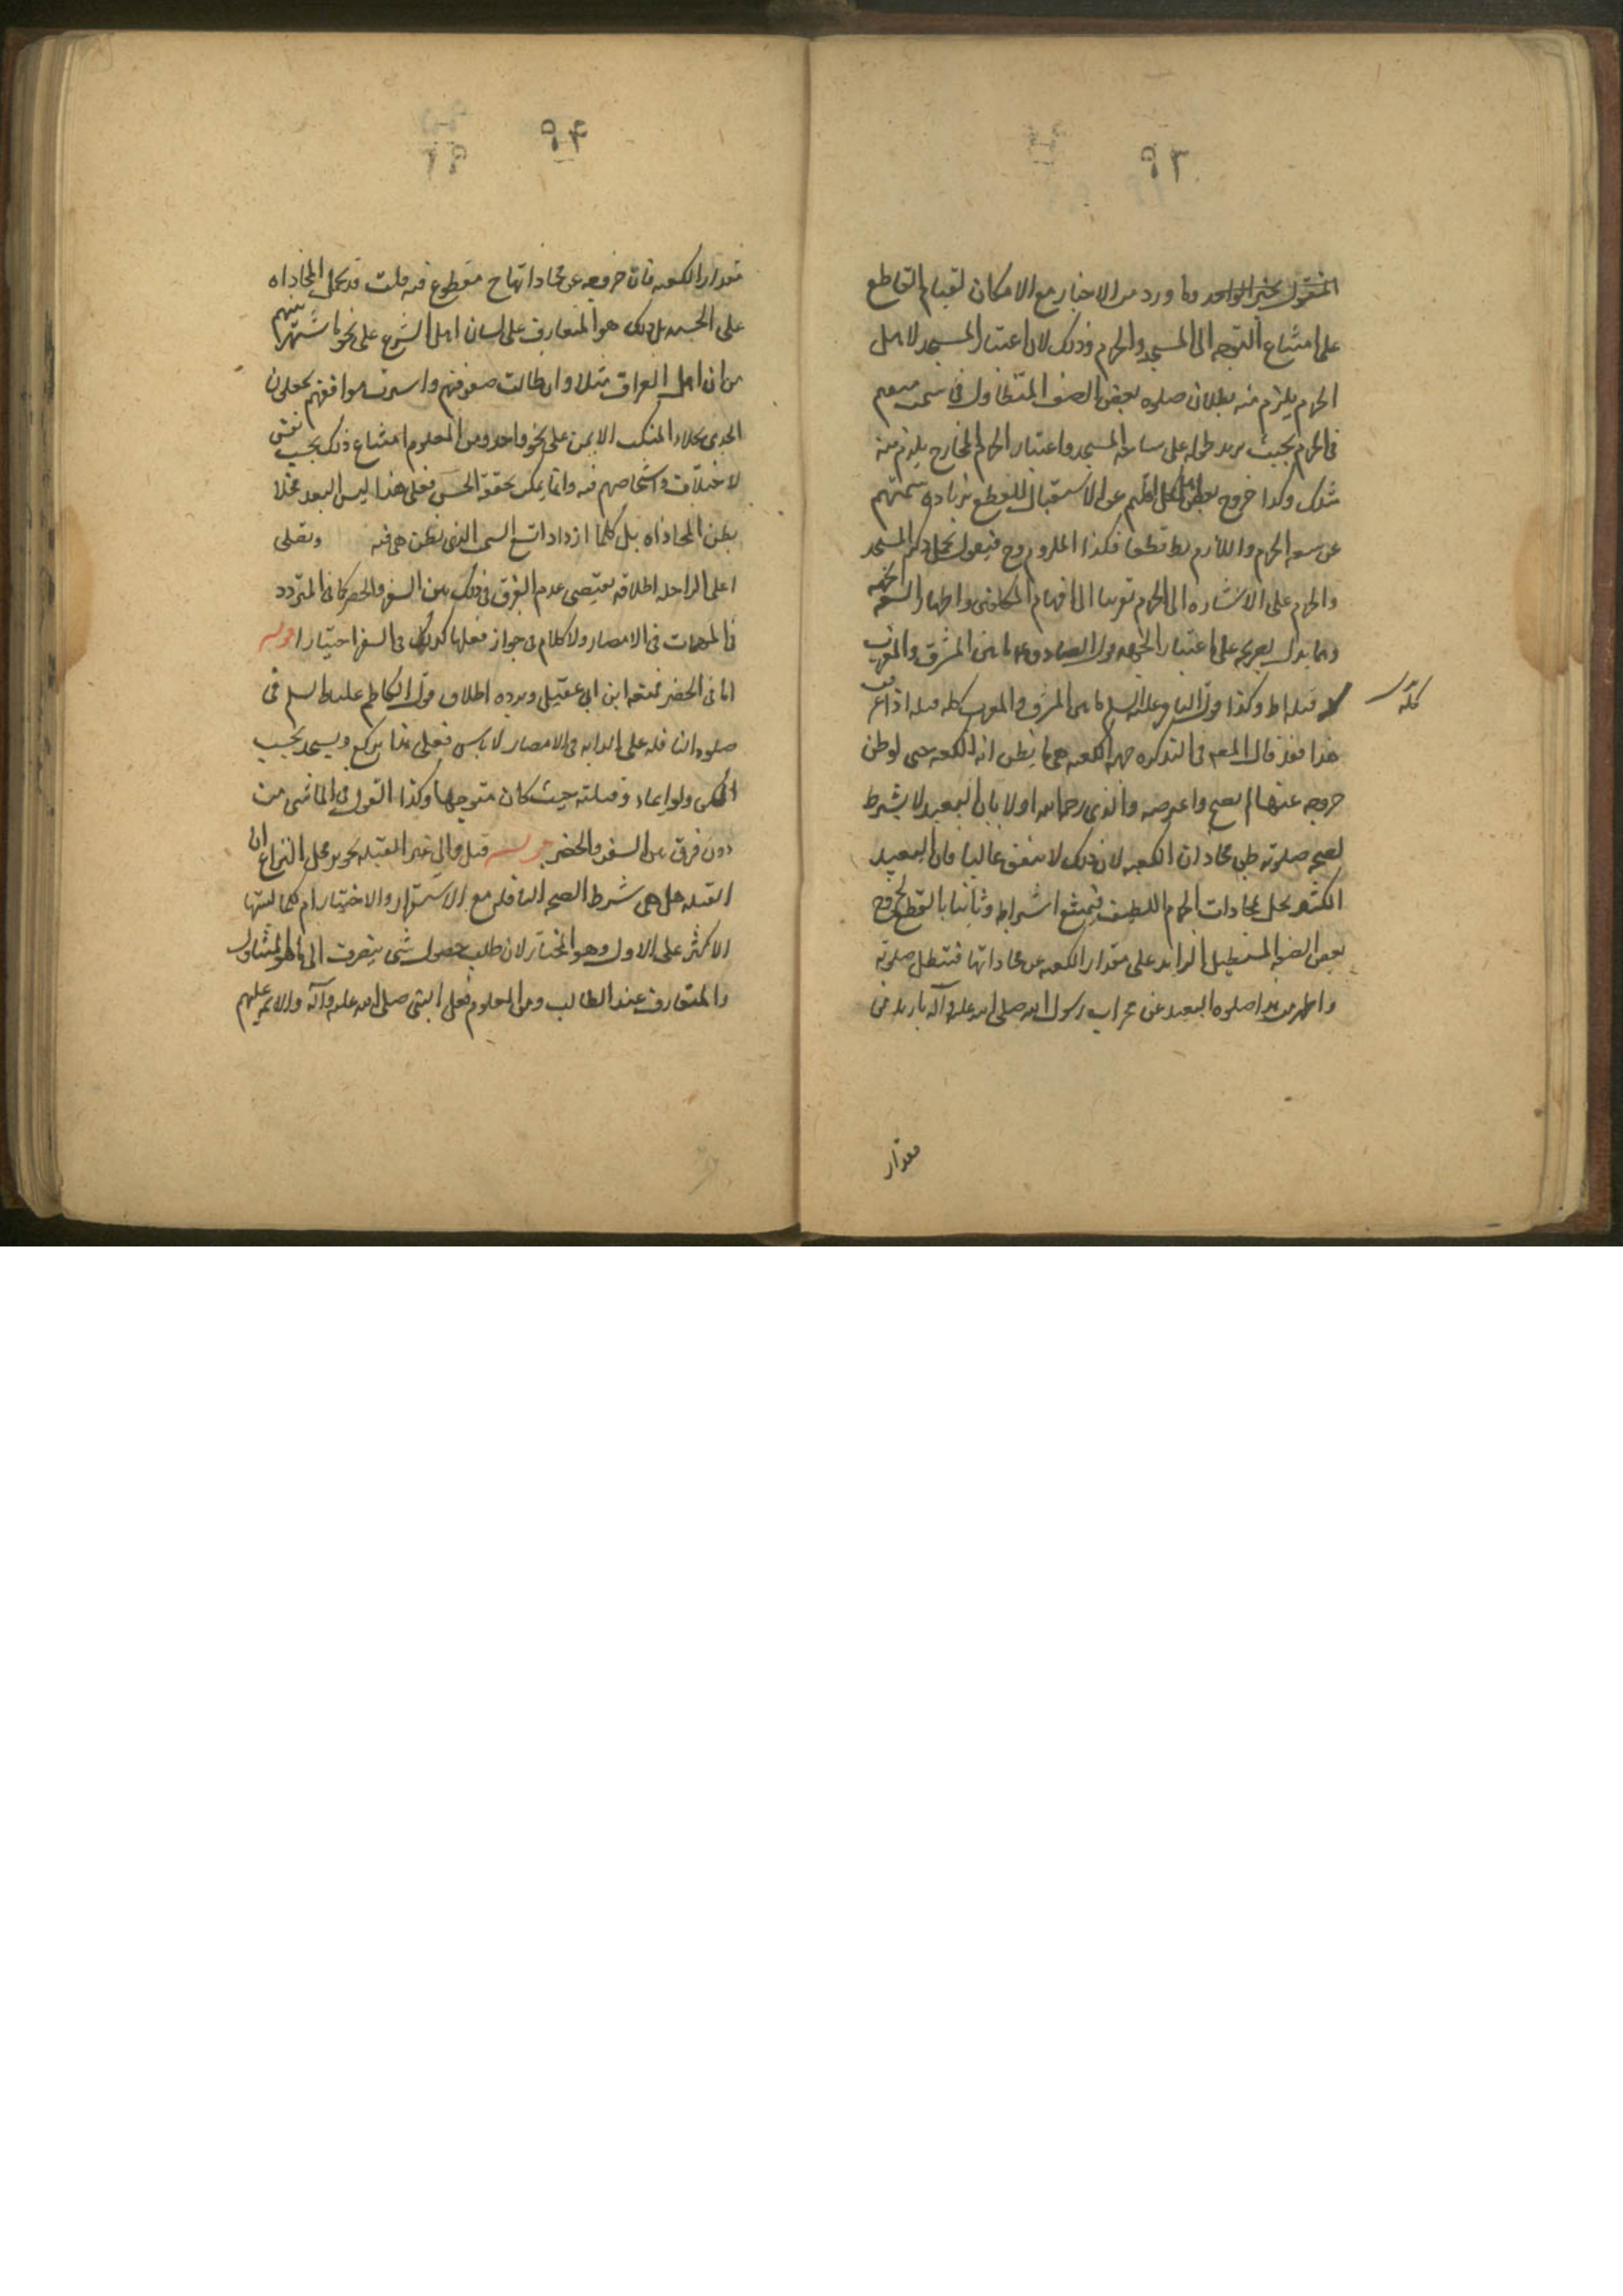 ٩٣
المنقول بخبر الواحد وما ورد من الاخبار مع الامكان لقيام القاطع
على امتناع التوجه الى المسجد والحرم وذلك لان اعتبار المسجد لاهل
الحرم يلزم منه بطلان صلوه بعض الصف المتطاول فى سمت
فى الحرم بحيث يزيد طوله على ساحة المسجد واعتبار الحرم للخارج يلزم منه
ذلك وكذا خروج بعض اهل اقليم عن الاستقبال للقطع بزيادة سمتهم
عن سعه الحرم واللازم بط قطعا فكذا الملزوم وح فيقول بحمل ذكر المسجد
والحرم على الاشاره الى الحرم تقريبا الى افهام المكلفين واظهار السعه
ومما يدل بصريحه على اعتبار الجهه قول الصادق ع ما بين المشرق والمغرب
قبله وكذا قول الباقر عليه السلم ما بين المشرق والمغرب كله قبله اذا
كله
هذا فقد قال المصه فى التذكره جهه الكعبه هى ما يظن انه الكعبه حتى لو ظن
خروجه عنها لم يصح واعترضه والذى رحمه الله اولا بان البعيد لا يشترط
لصحه صلوته ظن محاذات الكعبه لان ذلك لا يتفق غالبا فان البعيد
الكثير يخل بمحاذات الجرم اللطيف فيمتنع اشتراطه وثانيا بالقطع بخروج
بعض الصف المستطيل الزايد على مقدار الكعبه عن محاذاتها فتبطل صلوته
واظهر من هذا صلوه البعيد عن محراب رسول الله صلى الله عليه وآله بازيد من
مقدار
٩٤
مقدار الكعبه فان خروجه عن محاذاتها ح مقطوع فيه قلت قد يحمل المحاذاه
على الجهه بل ذلك هو المتعارف على لسان اهل الشرع على نحو ما شتهر بينهم
من ان اهل العراق مثلا وان طالت صفوفهم مواقفهم يجعلون
الجدى بحذاء المنكب الايمن على نحو واحد ومن المعلوم امتناع ذلك بحسب نفس
اشخاصهم فيه وانما يمكن الحس فعلى هذا ليس البعد مخلا
بظن المحاذاه بل كلما ازداد اتسع السمت الذى يظن هى فيه ويصلى
على الراحله اطلاقه يقتضى عدم الفرق فى ذلك بين السفر والحضر كما فى المتردد
فى المهمات فى الامصار ولا كلام فى جواز فعلها كذلك فى السفر اختيارا
اما فى الحضر فمنعه ابن ابى عقيل ويرده اطلاق قول الكاظم عليه السلم فى
صلوه النافله على الدابه فى الامصار لا باس فعلى هذا يركع ويسجد بحسب
المكن ولو ايماء وقبلته حيث كان متوجها وكذا القول فى الماشى من
دون فرق بين السفر والحضر قوله قيل والى غير القبله تحرير محل النزاع ان
القبله هل هى شرط لصحه النافله مع الاستقرار والاختيار ام
الاكثر على الاول وهو المختار لان طلب حصول شى ينصرف الى ما هو المتداول
والمتعارف عند الطالب ومن المعلوم فعل النبى صلى الله عليه وآله والايمه عليهم